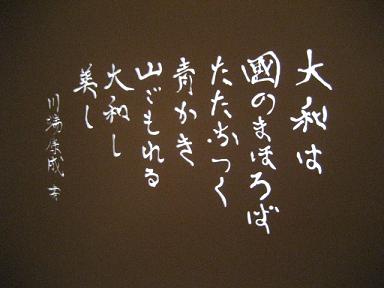 大和は
國のまほろば
たたなつく
青かき
山ごもれる
大和し
美し
川端康成 書